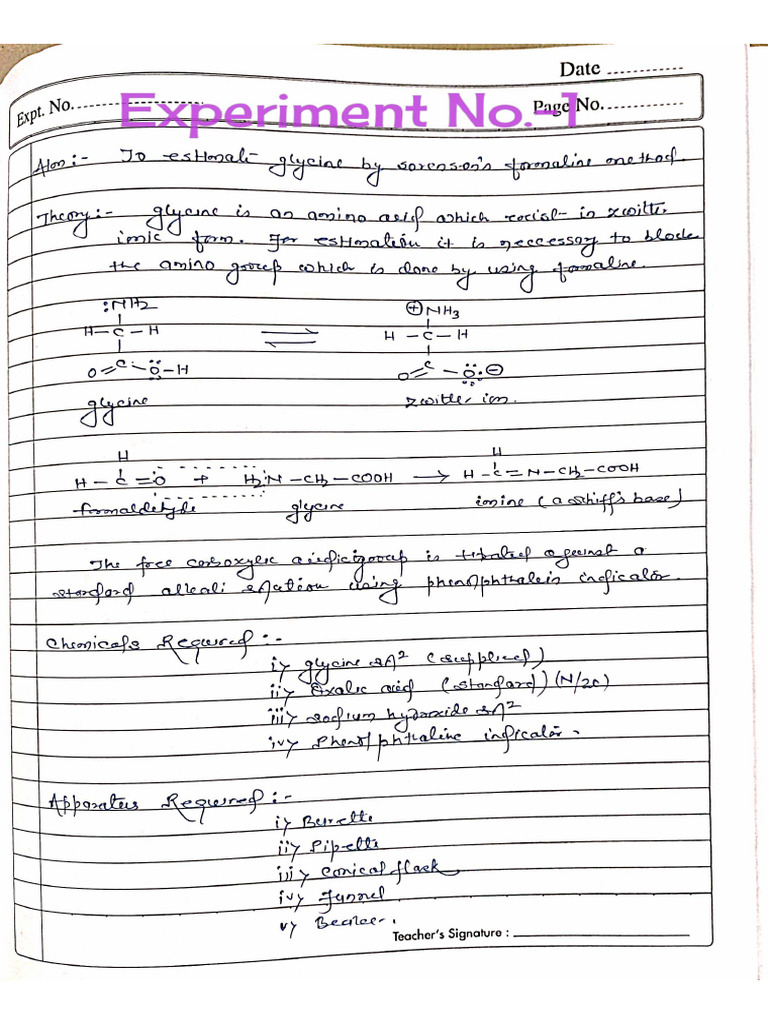 Date ............
Expt. No. ........................
Experiment No.-1
Page No. ............
Aim:- To estimate glycine by sorenson's formaline method.
Theory:- glycine is an amino acid which exist in zwitter
ionic form. For estimation it is neccessary to block
the amino group which is done by using formaline.
:NH2 ⊕NH3
H-C-H ⇌ H-C-H
O=C-Ö-H O=C-Ö:⊖
glycine zwitter ion.
H H
H-C=O + H2N-CH2-COOH → H-C=N-CH2-COOH
formaldehyde glycine imine (a schiff's base)
The free carboxylic acidic group is titrated against a
standard alkali solution using phenolphthalein indicator.
Chemicals Required:-
i> glycine solⁿ (supplied)
ii> Oxalic acid (standard) (N/20)
iii> sodium hydroxide solⁿ
iv> Phenolphthaline indicator.
Apparatus Required:-
i> Burette
ii> Pipette
iii> Conical flask
iv> Funnel
v> Beaker.
Teacher's Signature : ____________________